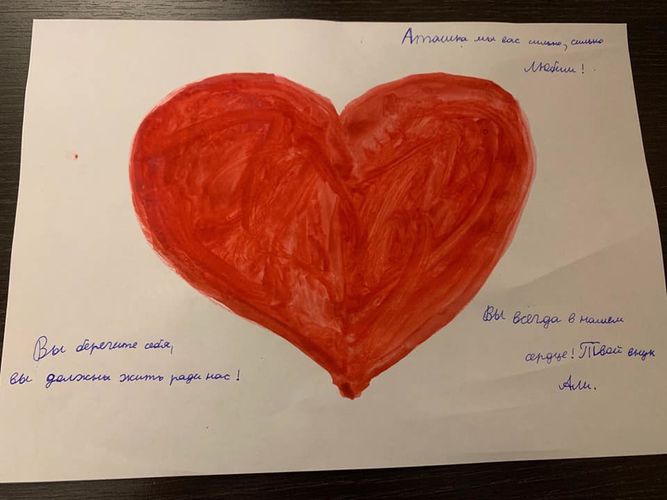 Аташка мы вас сильно, сильно
Любим!
Вы берегите себя,
вы должны жить ради нас!
Вы всегда в нашем
сердце! Твой внук
Али.